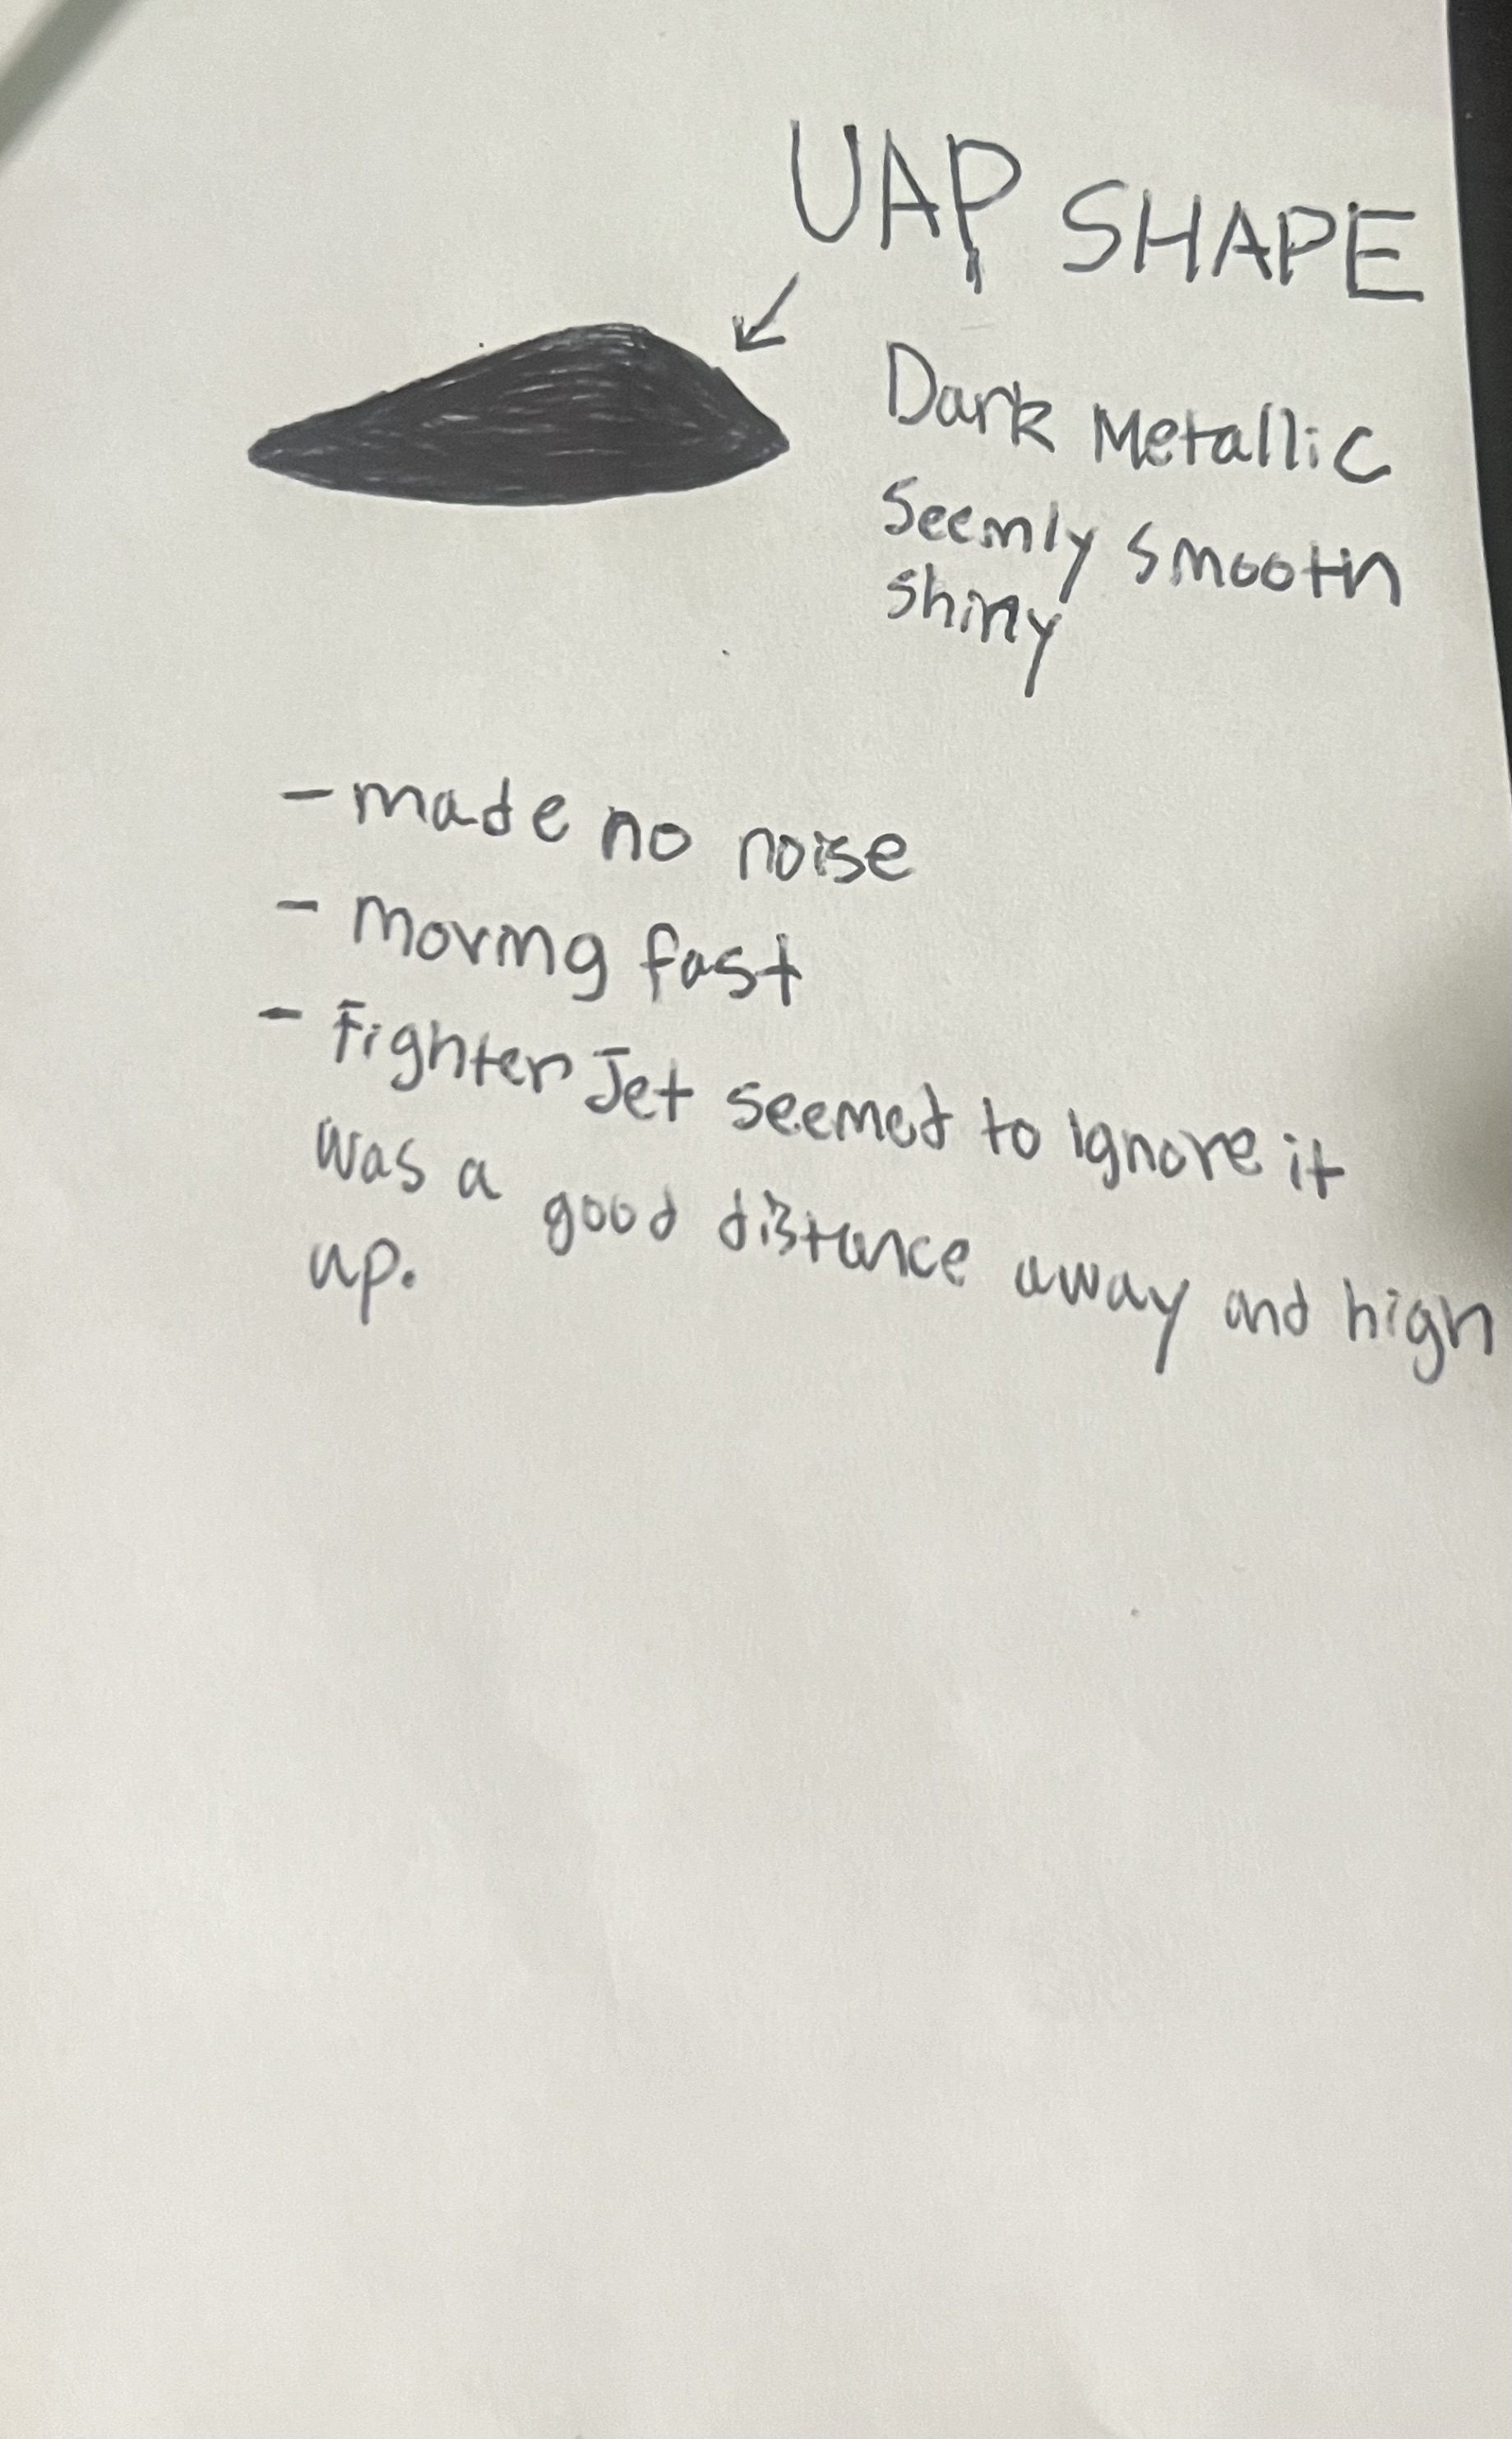 UAP SHAPE
Dark Metallic
Seemly smooth
shiny
- made no noise
- moving fast
- Fighter Jet seemed to ignore it
was a good distance away and high
up.